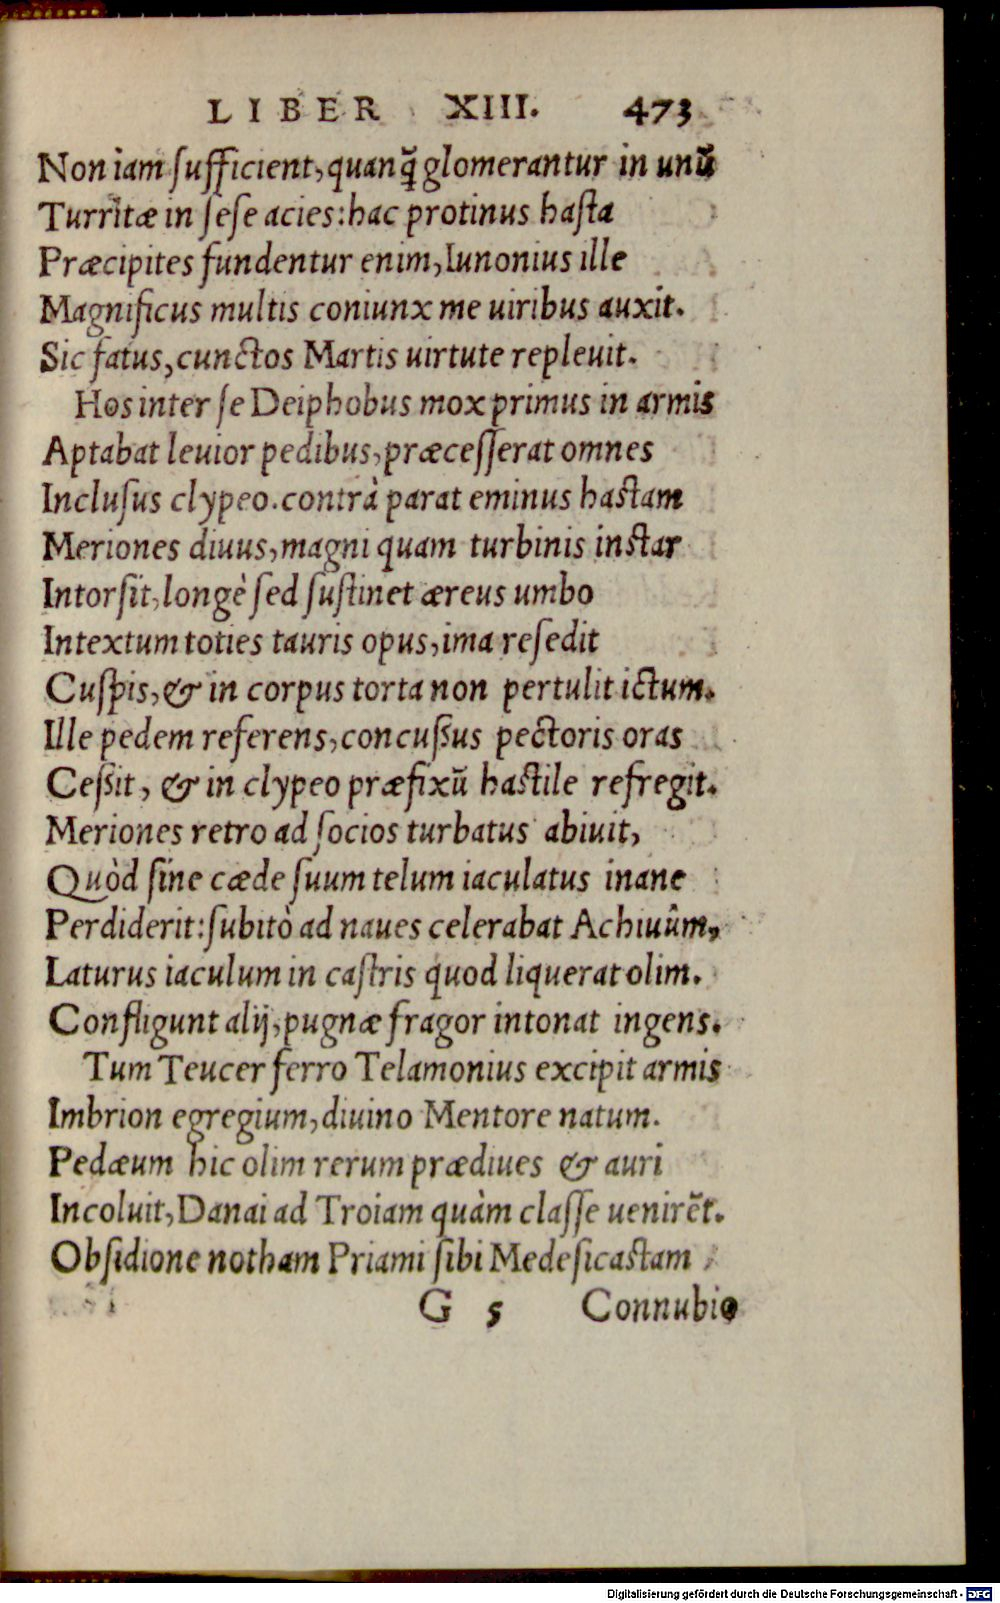 LIBER XIII. 473
Non iam ſufficient, quanq̃ glomerantur in unũ
Turritæ in ſeſe acies: hac protinus haſta
Præcipites fundentur enim, Iunonius ille
Magnificus multis coniunx me uiribus auxit.
Sic fatus, cunctos Martis uirtute repleuit.
Hos inter ſe Deiphobus mox primus in armis
Aptabat leuior pedibus, præceſſerat omnes
Incluſus clypeo. contrà parat eminus haſtam
Meriones diuus, magni quam turbinis inſtar
Intorſit, longè ſed ſuſtinet æreus umbo
Intextum toties tauris opus, ima reſedit
Cuſpis, & in corpus torta non pertulit ictum.
Ille pedem referens, concuſſus pectoris oras
Ceſſit, & in clypeo præfixũ haſtile refregit.
Meriones retro ad ſocios turbatus abiuit,
Quòd ſine cæde ſuum telum iaculatus inane
Perdiderit: ſubitò ad naues celerabat Achiuûm,
Laturus iaculum in caſtris quod liquerat olim.
Confligunt alij, pugnæ fragor intonat ingens.
Tum Teucer ferro Telamonius excipit armis
Imbrion egregium, diuino Mentore natum.
Pedæum hic olim rerum prædiues & auri
Incoluit, Danai ad Troiam quàm claſſe uenirẽt.
Obſidione notham Priami ſibi Medeſicaſtam
G 5 Connubio
Digitalisierung gefördert durch die Deutsche Forschungsgemeinschaft - DFG